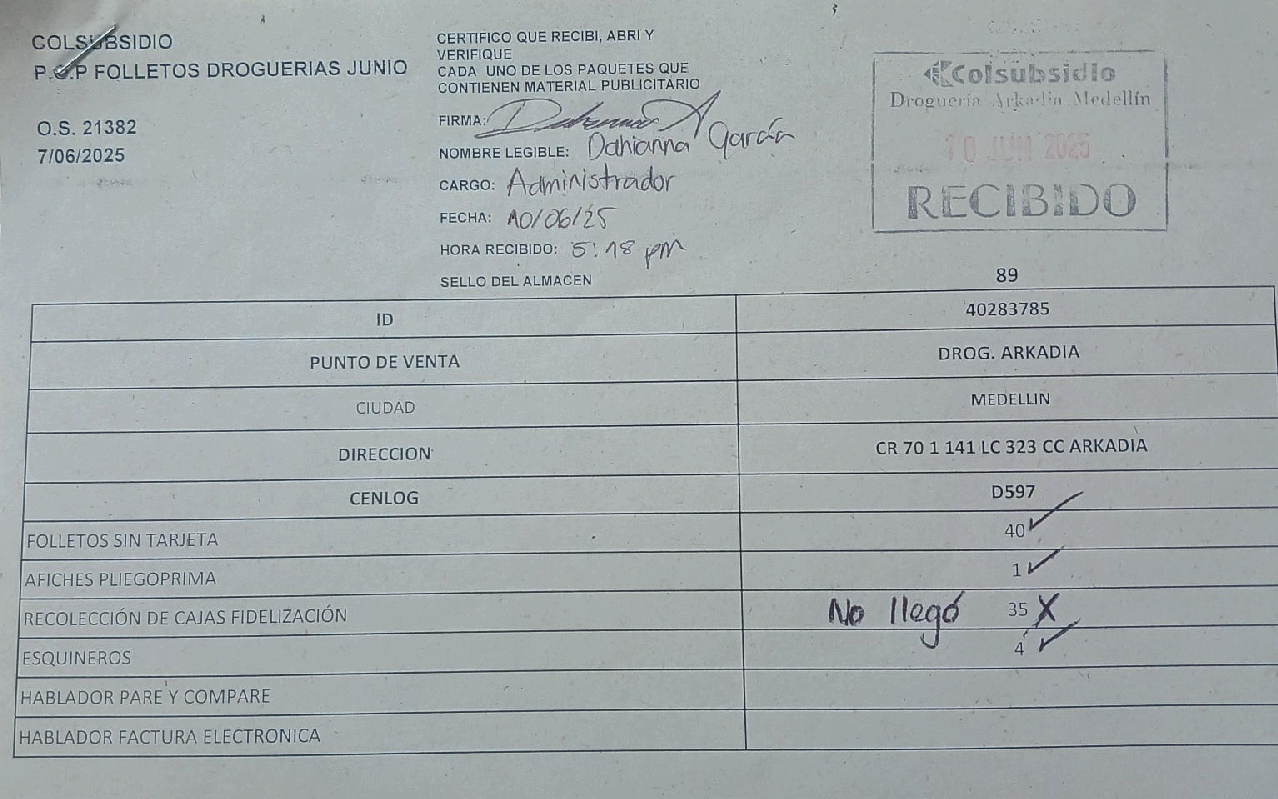 COLSUBSIDIO
P.O.P FOLLETOS DROGUERIAS JUNIO
O.S. 21382
7/06/2025
CERTIFICO QUE RECIBI, ABRI Y
VERIFIQUE
CADA UNO DE LOS PAQUETES QUE
CONTIENEN MATERIAL PUBLICITARIO
FIRMA:
NOMBRE LEGIBLE: Dahianna García
CARGO: Administrador
FECHA: 10/06/25
HORA RECIBIDO: 5:18 pm
SELLO DEL ALMACEN
Colsubsidio
Droguería Arkadia Medellín
10 JUN 2025
RECIBIDO
89
ID 40283785
PUNTO DE VENTA DROG. ARKADIA
CIUDAD MEDELLIN
DIRECCION CR 70 1 141 LC 323 CC ARKADIA
CENLOG D597
FOLLETOS SIN TARJETA 40 ✓
AFICHES PLIEGOPRIMA 1 ✓
RECOLECCIÓN DE CAJAS FIDELIZACIÓN No llegó 35 X
ESQUINEROS 4 ✓
HABLADOR PARE Y COMPARE
HABLADOR FACTURA ELECTRONICA